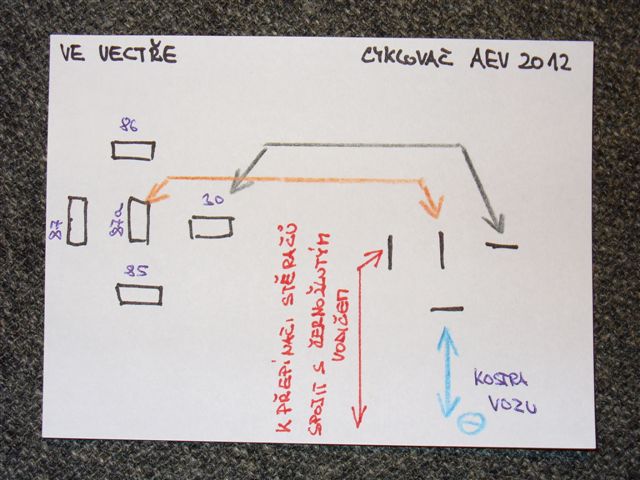 VE VECTŘE
CYKLOVAČ AEV 2012
86
87
87a
30
85
K PŘEPÍNAČI STĚRAČŮ
SPOJIT S ČERNOŽLUTÝM
VODIČEM
KOSTRA
VOZU
-